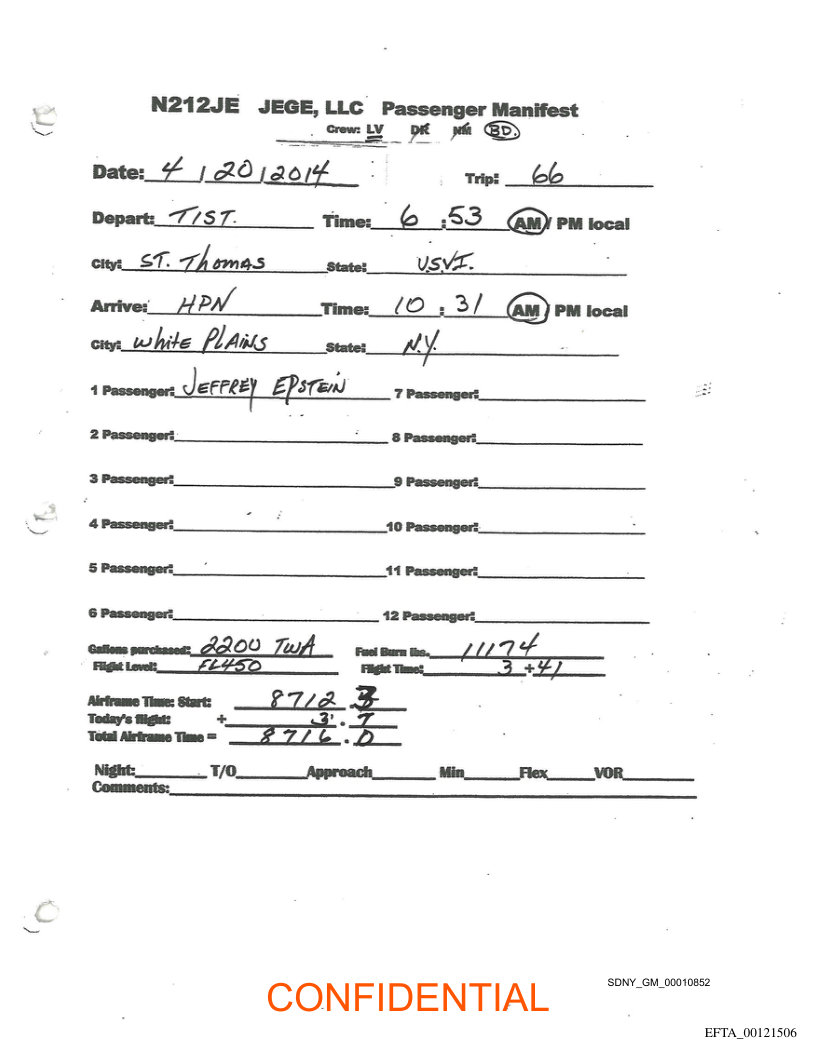 N212JE JEGE, LLC Passenger Manifest
Crew: LV DK NM BD.
Date: 4 | 20 | 2014 Trip: 66
Depart: TIST. Time: 6 :53 AM / PM local
City: ST. Thomas State: USVI.
Arrive: HPN Time: 10 : 31 AM / PM local
City: White Plains State: N.Y.
1 Passenger: JEFFREY EPSTEIN 7 Passenger:
2 Passenger: 8 Passenger:
3 Passenger: 9 Passenger:
4 Passenger: 10 Passenger:
5 Passenger: 11 Passenger:
6 Passenger: 12 Passenger:
Gallons purchased: 2200 TWA Fuel Burn lbs. 11174
Flight Level: FL450 Flight Time: 3 +41
Airframe Time: Start: 8712 .3
Today's flight: + 3 . 7
Total Airframe Time = 8716 . 0
Night: T/O Approach Min Flex VOR
Comments:
SDNY_GM_00010852
CONFIDENTIAL
EFTA_00121506